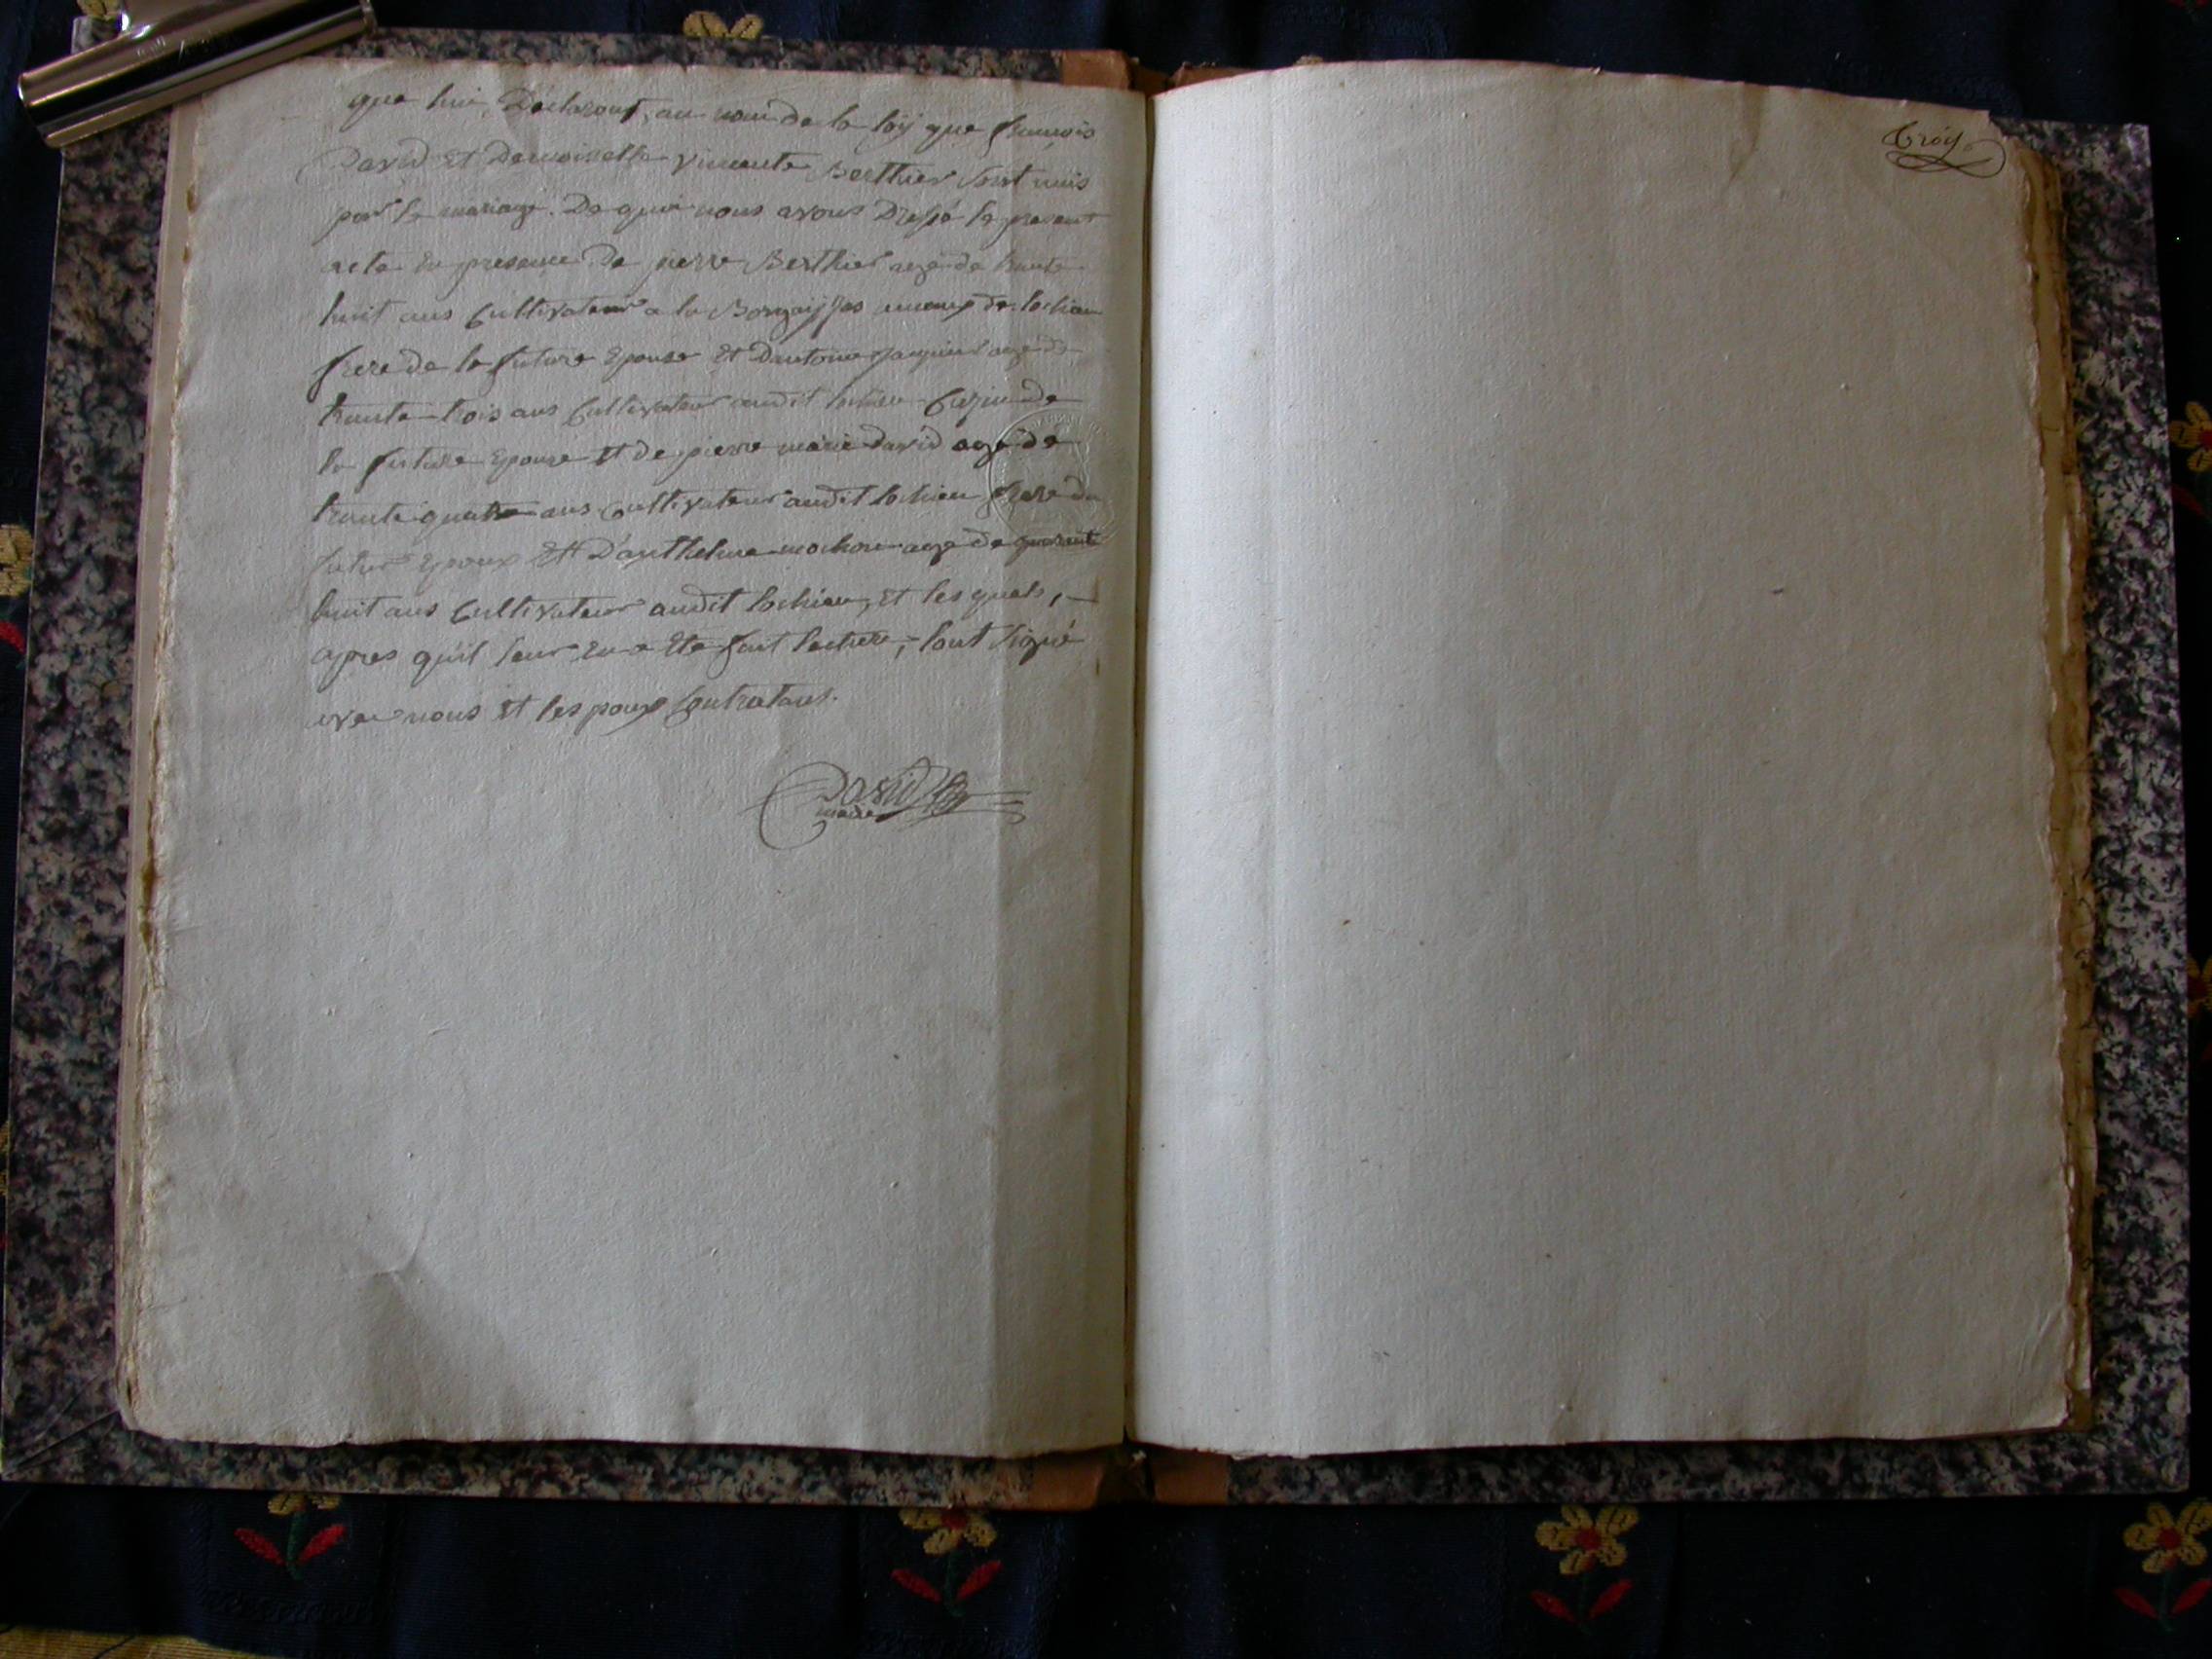 que lui, Déclarons, au nom de la loÿ que francois
David Et Demoiselle vincente Berthier sont unis
par le mariage. De quoi nous avons Dressé le present
acte En presence De pierre Berthier agé de trente
huit ans Cultivateur a la hameau de lochieu
frere de la future Epouse Et Dantoine Jaquier agé de
trente trois ans Cultivateur audit lochieu Cusin de
la future Epouse Et de pierre marie David agé de
trente quatre ans Cultivateur audit lochieu frere du
futur Epoux Et D'anthelme mochon agé de quarente
huit ans Cultivateur audit lochieu, Et les quels,
apres qu'il leur En a Eté fait lecture, l'ont signé
avec nous Et les poux Contratans.
David
maire
Troy